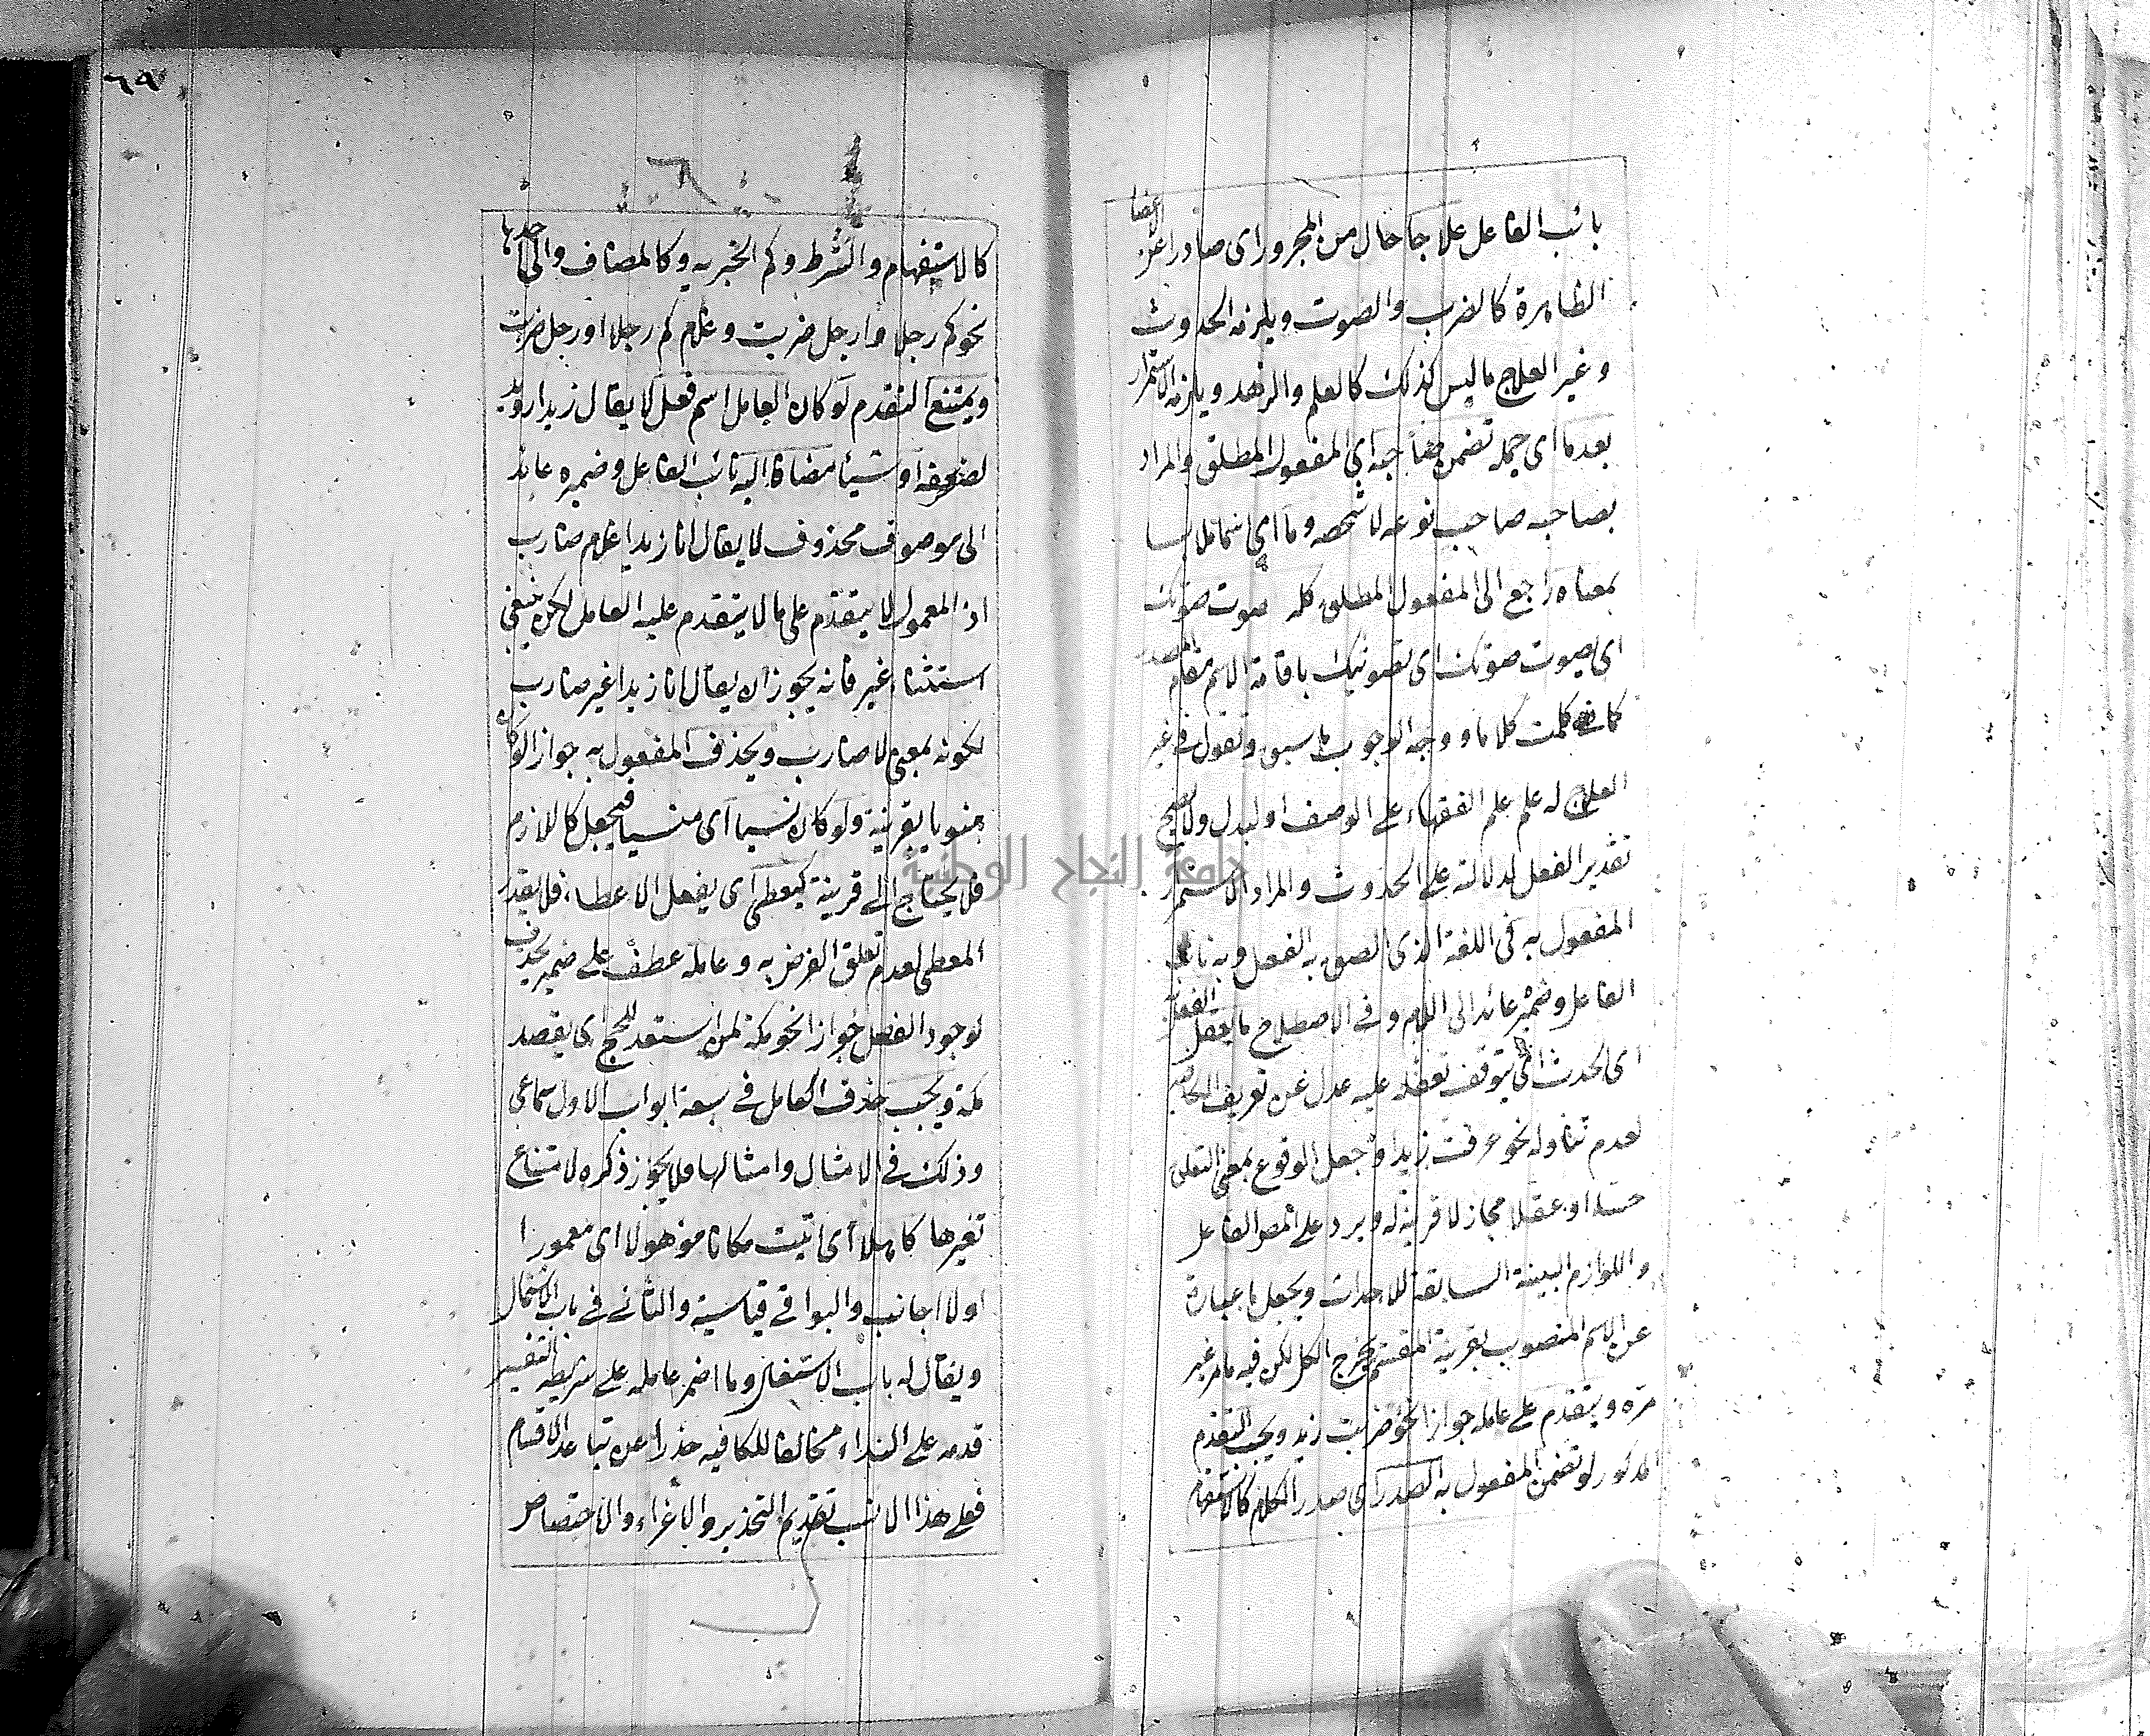 نائب الفاعل علاجا حال من المجرور اى صادرا عن الاعضا
الظاهرة كالضرب والصوت ويلزمه الحدوث
وغير العلاج ما ليس كذلك كالعلم والزهد ويلزمه الاستمرار
بعد ما اى جملة تضمن صاحبه اى المفعول المطلق والمراد
بصاحبه صاحب نوعه لا شخصه وما اى اسما ملابسا
بمعناه راجع الى المفعول المطلق كله صوت صوتك
اى يصوت صوتك اى تصويتك باقامة الاسم مقام المصدر
كما في كلمت كلاما ووجه الوجوب ما سبق وتقول في غير
العلاج له علم علم الفقهاء على الوصف او البدل ولا يصح
تقدير الفعل لدلالته على الحدوث والمراد الاستمرار
المفعول به في اللغة الذى الصق به الفعل وبه نائب
الفاعل وضميره عائد الى اللام وفي الاصطلاح ما الفعل
اى الحدث الذي يتوقف تعقله عليه عدل عن تعريف الكافية
لعدم تناوله نحو عرفت زيدا وجعل الوقوع بمعنى التعلق
حسا او عقلا مجاز لا قرينة له ويرد على المص الفاعل
واللوازم البينة السابقة للاحداث ويجعل ما عبارة
عن الاسم المنصوب بقرينة المقسم يخرج الكل لكن فيه ما مر غير
مرة ويتقدم على عامله جوازا نحو ضربت زيد ويجب التقدم
المذكور لو تضمن المفعول به الصدر اى صدر الكلام كالاستفهام
٦٩
كالاستفهام والشرط وكم الخبرية وكالمضاف الى احدها
نحو كم رجلا وارجل ضربت وغلام كم رجلا او رجل ضربت
ويمتنع التقدم لو كان العامل اسم فعل لا يقال زيدا رويد
لضعفه او شيئا مضافا اليه نائب الفاعل وضميره عائد
الى موصوف محذوف لا يقال انا زيدا غلام ضارب
اذ المعمول لا يتقدم على ما لا يتقدم عليه العامل لكن ينبغي
استثناء غير فانه يجوز ان يقال انا زيدا غير ضارب
لكونه بمعنى لا ضارب ويحذف المفعول به جوازا لو كان
منويا بقرينة ولو كان نسيا اى منسيا فيجعل كاللازم
فلا يحتاج الى قرينة كيعطى اى يفعل الاعطاء فلا يقدر
المعطى لعدم تعلق الغرض به وعامله عطف على ضمير يحذف
لوجود الفصل جوازا نحو مكة لمن استعد للحج اى يقصد
مكة ويجب حذف العامل في سبعة ابواب الاول سماعى
وذلك في الامثال وامثالها فلا يجوز ذكره لامتناع
تغيرها كاهلا اى اتيت مكانا موهولا اى معمورا
او لا اجانب والبواقي قياسية والثاني في باب الاشتغال
ويقال له باب الاشتغال وما اضمر عامله على شريطة التفسير
قدمه على النداء مخالفا للكافية حذرا عن تباعد الاقسام
فعلى هذا الانسب تقديم التحذير والاغراء والاختصاص
جامعة النجاح الوطنية